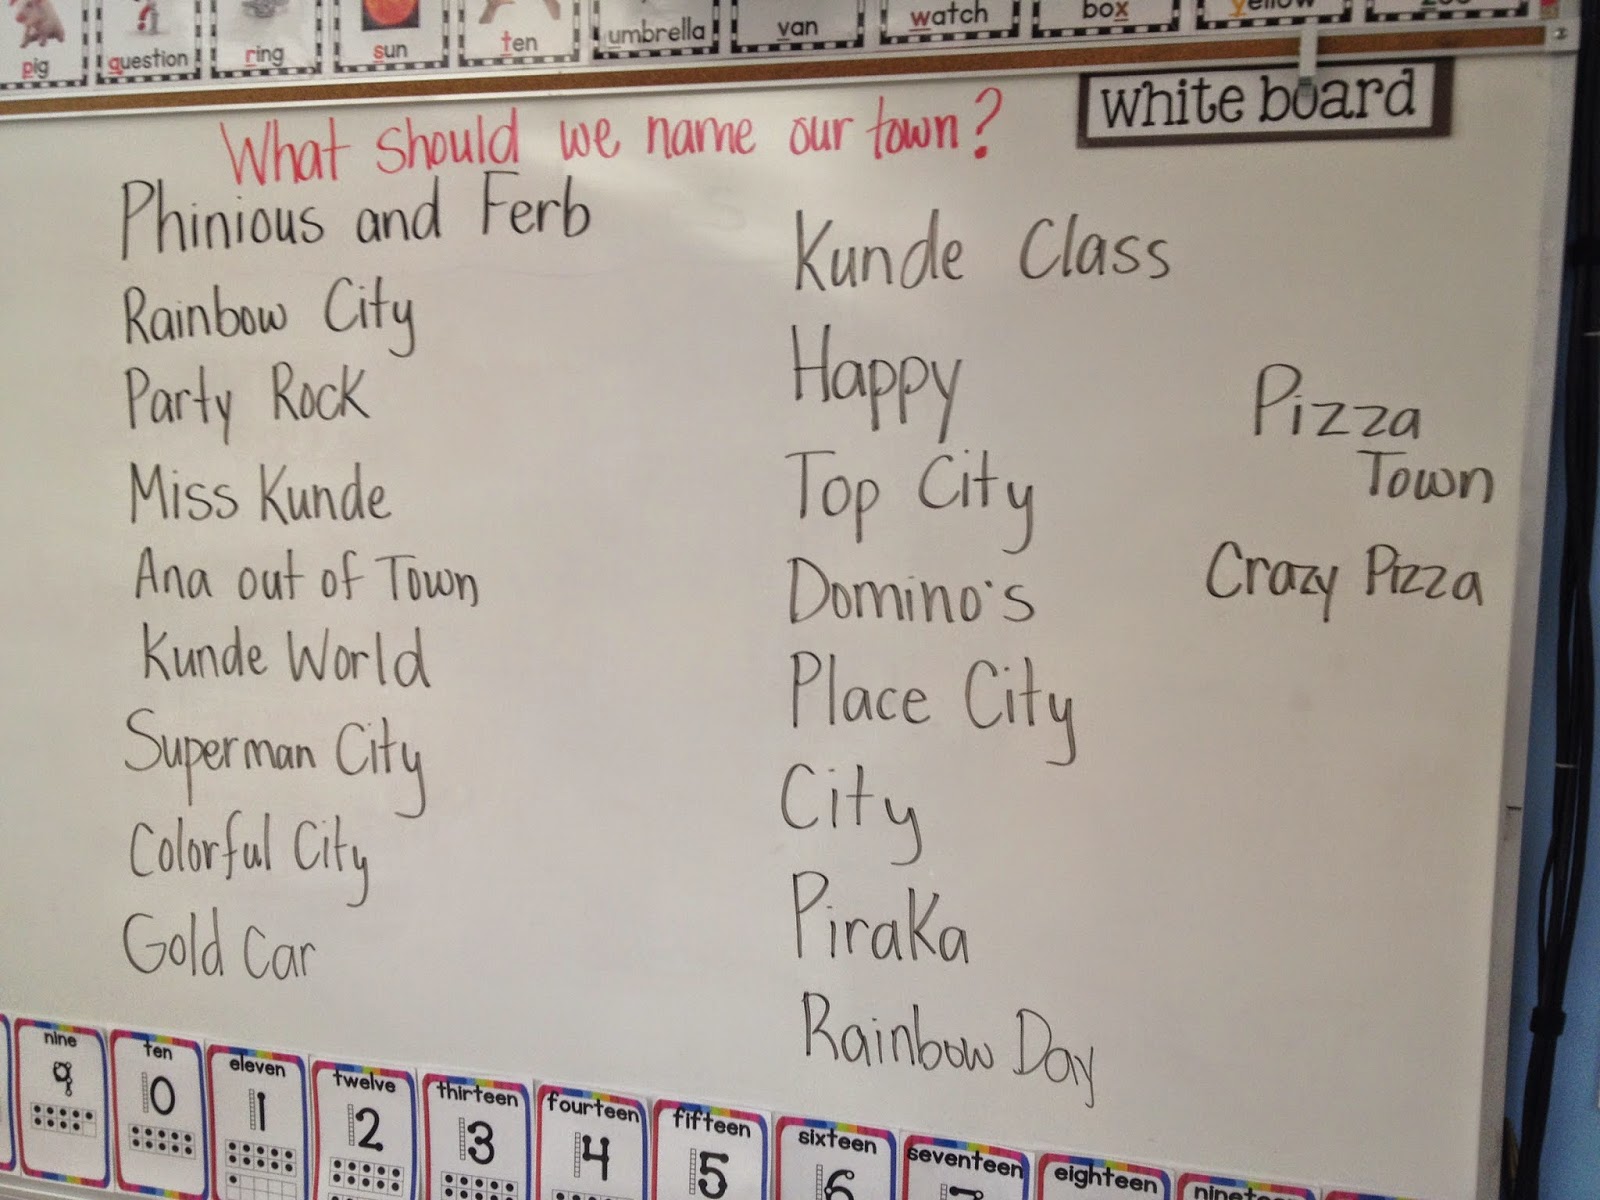 pig
question
ring
sun
ten
umbrella
van
watch
box
yellow
white board
What should we name our town?
Phinious and Ferb
Rainbow City
Party Rock
Miss Kunde
Ana out of Town
Kunde World
Superman City
Colorful City
Gold Car
Kunde Class
Happy
Top City
Domino's
Place City
City
Piraka
Rainbow Day
Pizza
Town
Crazy Pizza
nine
9
ten
10
eleven
11
twelve
12
thirteen
13
fourteen
14
fifteen
15
sixteen
16
seventeen
eighteen
nineteen